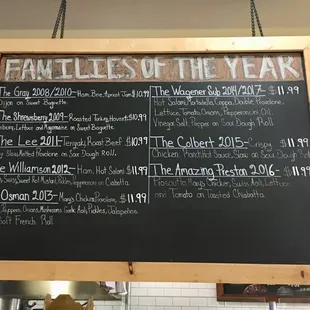 FAMILIES OF THE YEAR
The Gray 2008/2010- Ham, Brie, Apricot Jam $10.99
Dijon on Sweet Baguette
The Shrewsberry 2009- Roasted Turkey, Havarti $10.99
Lettuce and Mayonnaise on Sweet Baguette.
The Lee 2011- Teriyaki, Roast Beef $10.99
Provolone on Sour Dough Roll
Williamson 2012- Ham, Hot Salami $11.99
Swiss, Sweet Hot Mustard, Pickles, Pepperoncini on Ciabatta
Osman 2013- Mary's Chicken, Provolone $11.99
Peppers, Onions, Mushrooms, Garlic Aioli, Pickles, Jalapeños
French Roll
The Wagener Sub 2014/2017- $11.99
Hot Salami, Mortadella, Coppa, Double Provolone,
Lettuce, Tomato, Onions, Pepperoncini, Oil
Vinegar, Salt, Pepper on Sour Dough Roll
The Colbert 2015- Crispy $11.99
Chicken, Slaw on Sour Dough
The Amazing Preston 2016- $11.99
Prosciutto, Mary's Chicken, Swiss, Aioli, Lettuce
and Tomato on Toasted Ciabatta